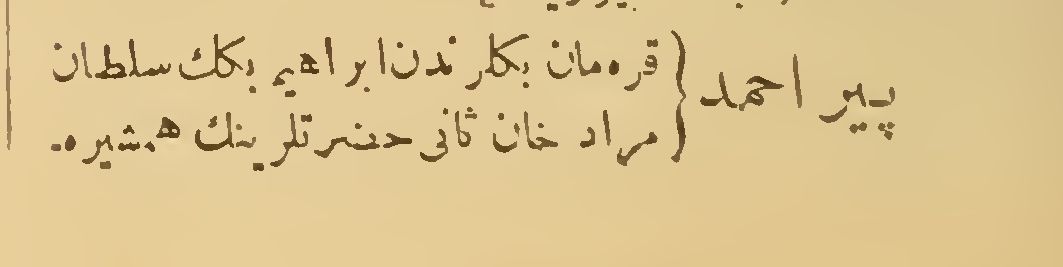 پیر احمد
قره مان بكلرندن ابراهیم بكك سلطان
مراد خان ثانی حضرتلرینك همشیره